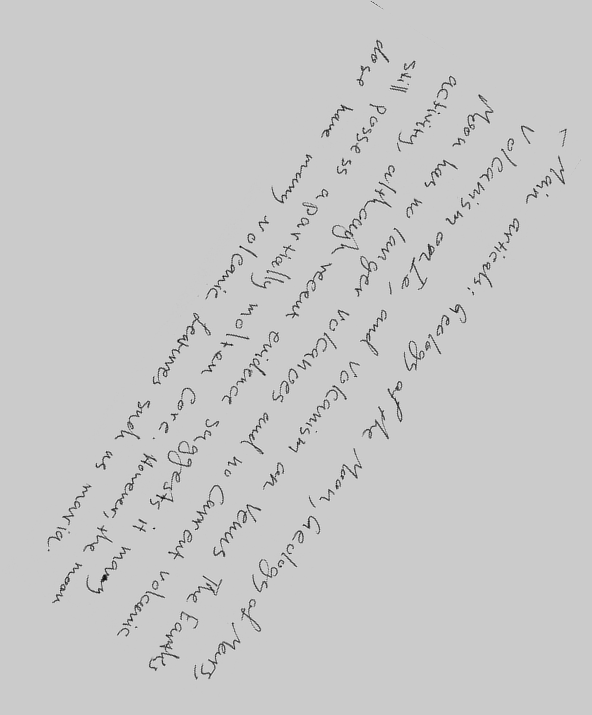 - Main articals: Geology of the Moon, Geology of Mars,
Volcanism on Io, and volcanism on Venus The Earth's
Moon has no langer volcanoes and no Current volcanic
activity, although recent evidence suggests it may
still possess a partially molten Core. However, the moon
dose have many volcanic features such as maria.